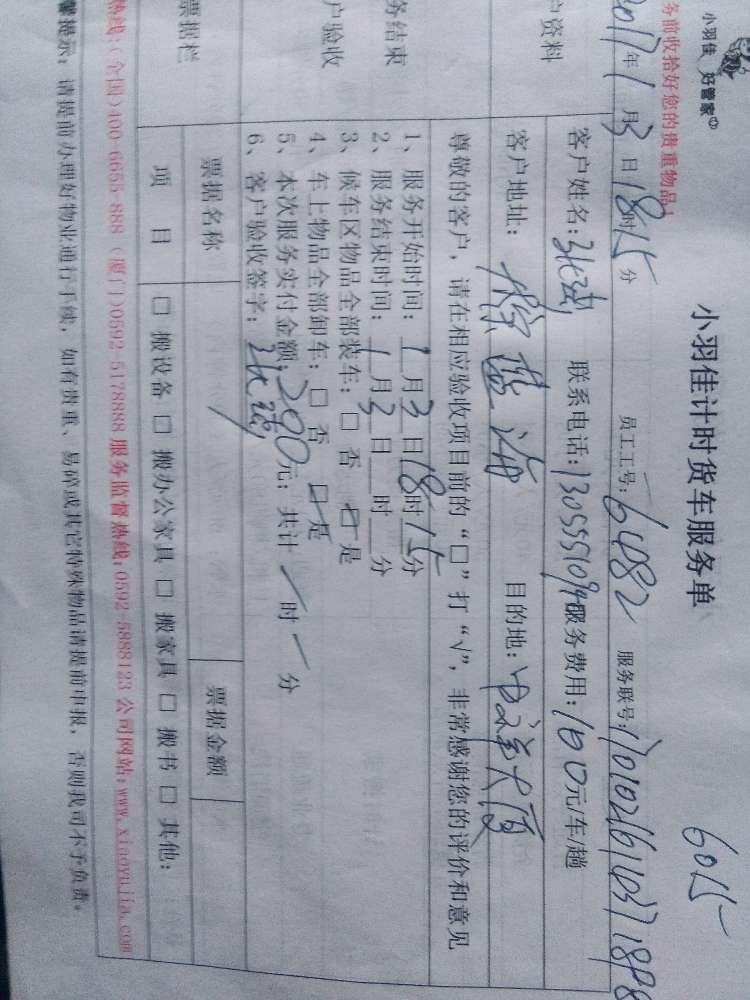 小羽佳 好管家
小羽佳计时货车服务单
6015
务前收拾好您的贵重物品！
2017年1月3日18时15分 员工工号：6482 服务联号：
户资料
客户姓名：张斌 联系电话： 服务费用：100元/车/趟
客户地址： 目的地：中洋大厦
尊敬的客户，请在相应验收项目前的“□”打“√”，非常感谢您的评价和意见
务结束
户验收
1、服务开始时间：1月3日18时15分
2、服务结束时间：1月3日 时 分
3、候车区物品全部装车：□ 否 □ 是
4、车上物品全部卸车：□ 否 □ 是
5、本次服务实付金额：200元；共计 一 时 一 分
6、客户验收签字：张斌
票据栏
票据名称 票据金额
项 目 □ 搬设备 □ 搬办公家具 □ 搬家具 □ 搬书 □ 其他：
热线：(全国)400-6655-888 (厦门)0592-5178888 服务监督热线：0592-5888123 公司网站：www.xiaoyujia.com
馨提示：请提前办理好物业通行手续，如有贵重、易碎或其它特殊物品请提前申报，否则我司不予负责。